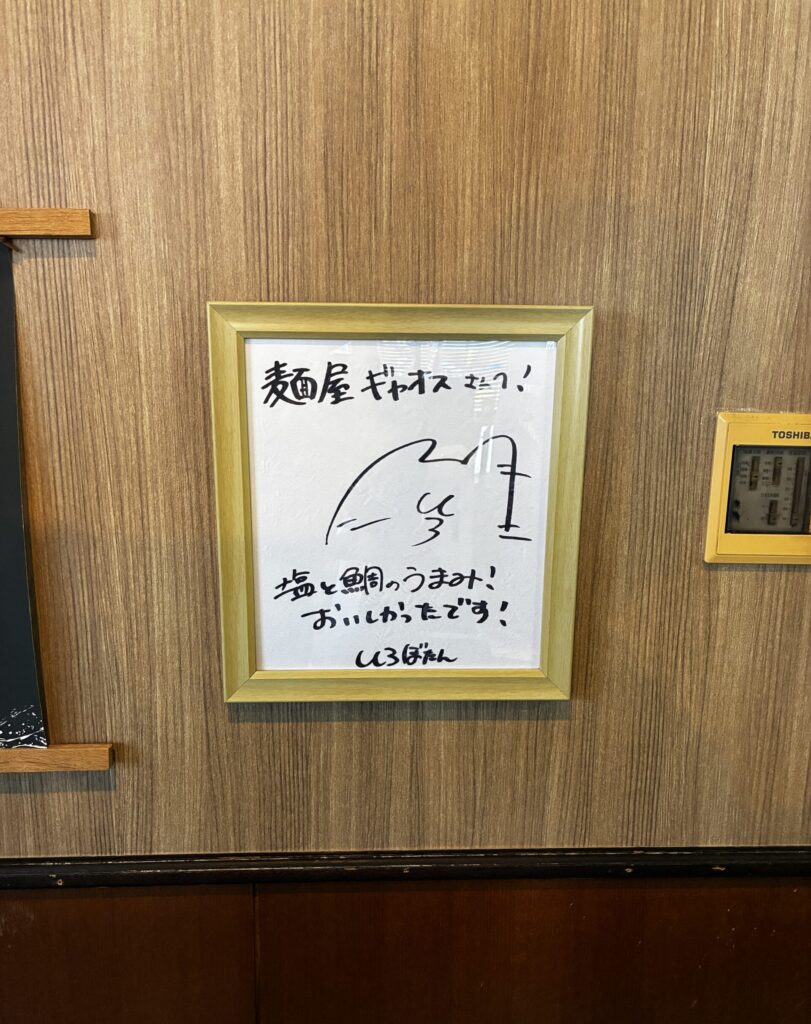 麺屋 ギャオス さんへ!
ひろ
塩と鯛のうまみ!
おいしかったです!
ひろぼたん
TOSHIBA